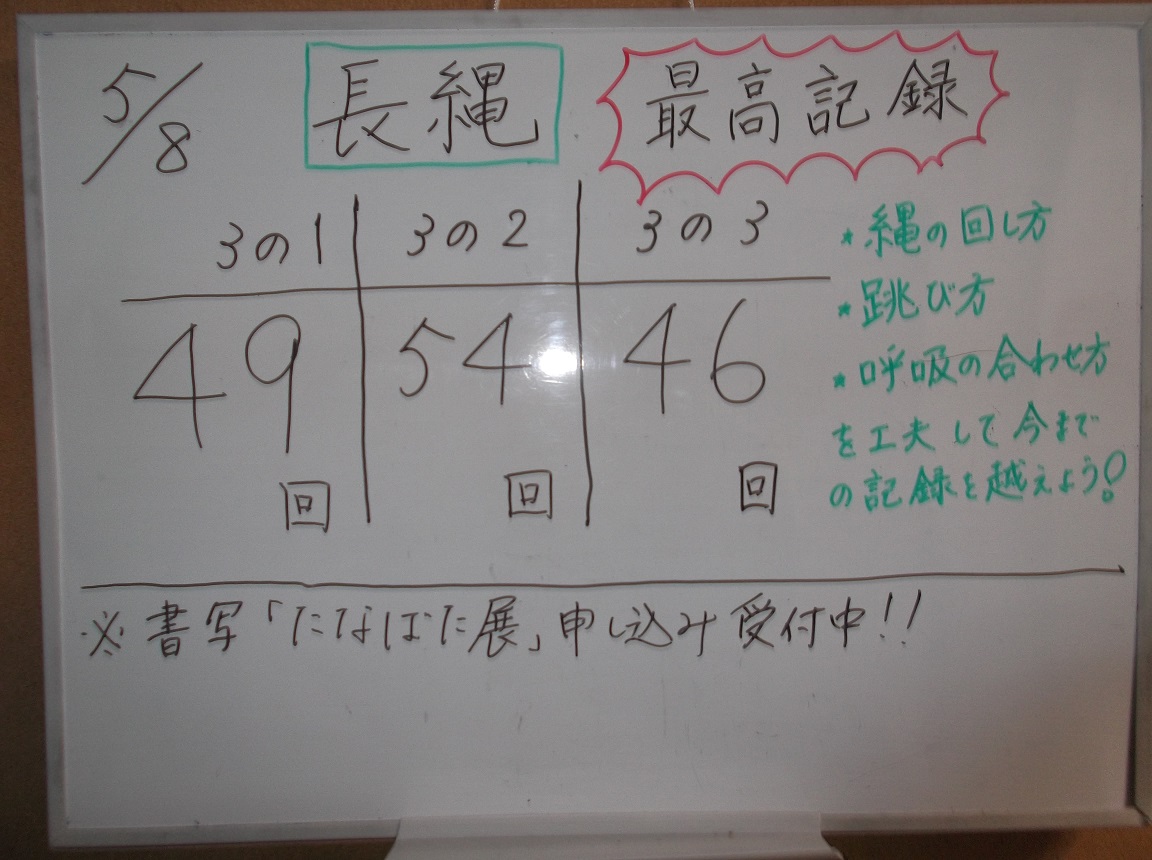 5/8 長縄 最高記録
3の1 3の2 3の3
49回 54回 46回
*縄の回し方
*跳び方
*呼吸の合わせ方
を工夫して今まで
の記録を越えよう!
※書写「たなばた展」申し込み受付中!!